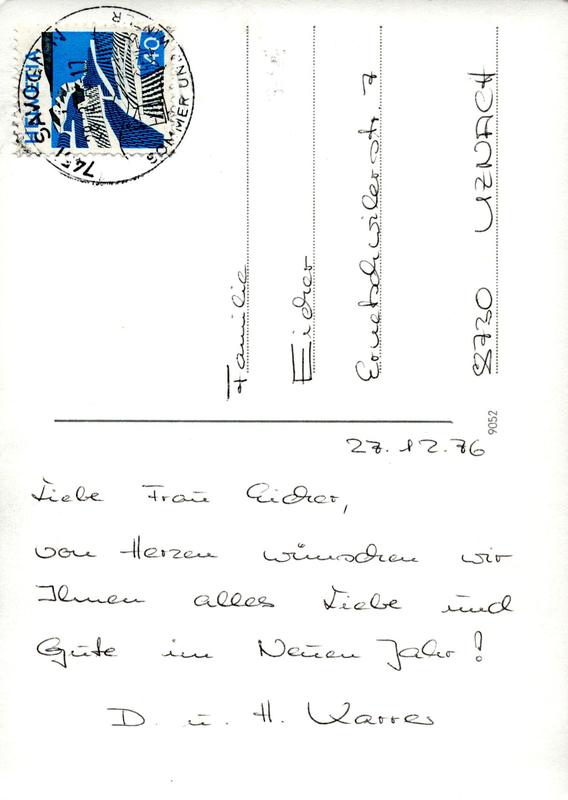 HELVETIA
40
7451 SAVOGNIN
SOMMER UND
WINTER
Familie
Eicher
Ernetschwilerstr. 7
8730 UZNACH
9052
27.12.76
Liebe Frau Eicher,
von Herzen wünschen wir
Ihnen alles Liebe und
Gute im Neuen Jahr!
D. u. H. Karrer